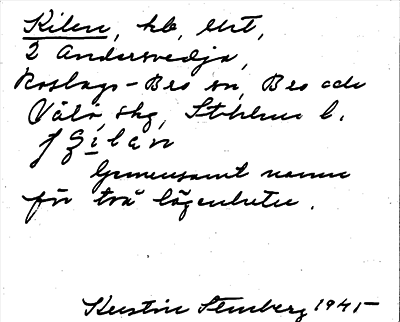 Kilen, hb, lht,
2 Andersvedja,
Roslags-Bro sn, Bro och
Vätö skg, Sthlms l.
Gemensamt namn
för två lägenheter.
Kerstin Stenberg 1945